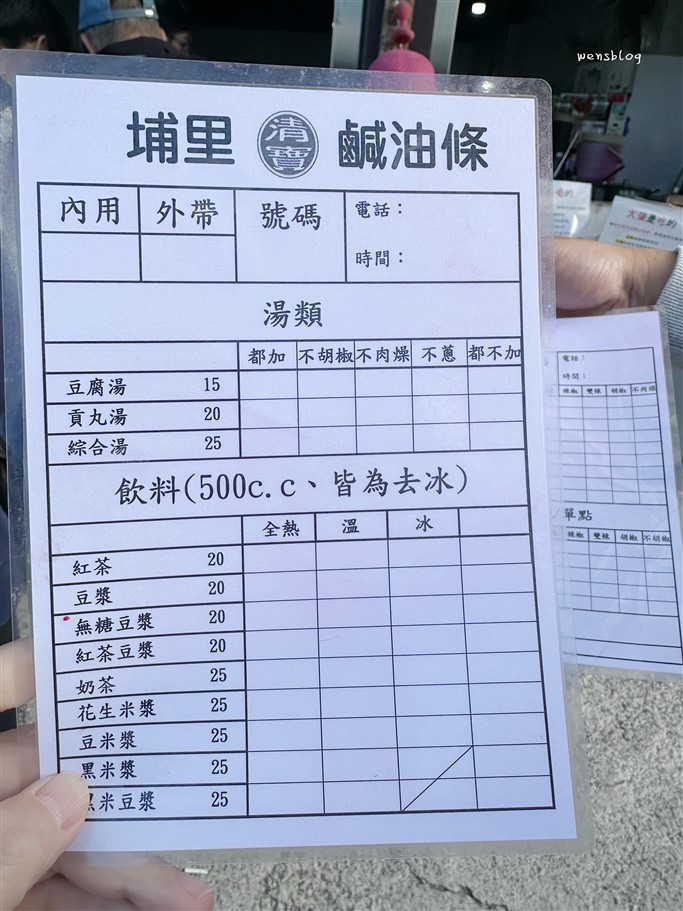 wensblog
埔里 清寶 鹹油條
內用 外帶 號碼 電話：
時間：
湯類
都加 不胡椒 不肉燥 不蔥 都不加
豆腐湯 15
貢丸湯 20
綜合湯 25
飲料(500c.c、皆為去冰)
全熱 溫 冰
紅茶 20
豆漿 20
無糖豆漿 20
紅茶豆漿 20
奶茶 25
花生米漿 25
豆米漿 25
黑米漿 25
黑米豆漿 25
電話：
時間：
辣椒 雙辣 胡椒 不肉燥
單點
辣椒 雙辣 胡椒 不胡椒